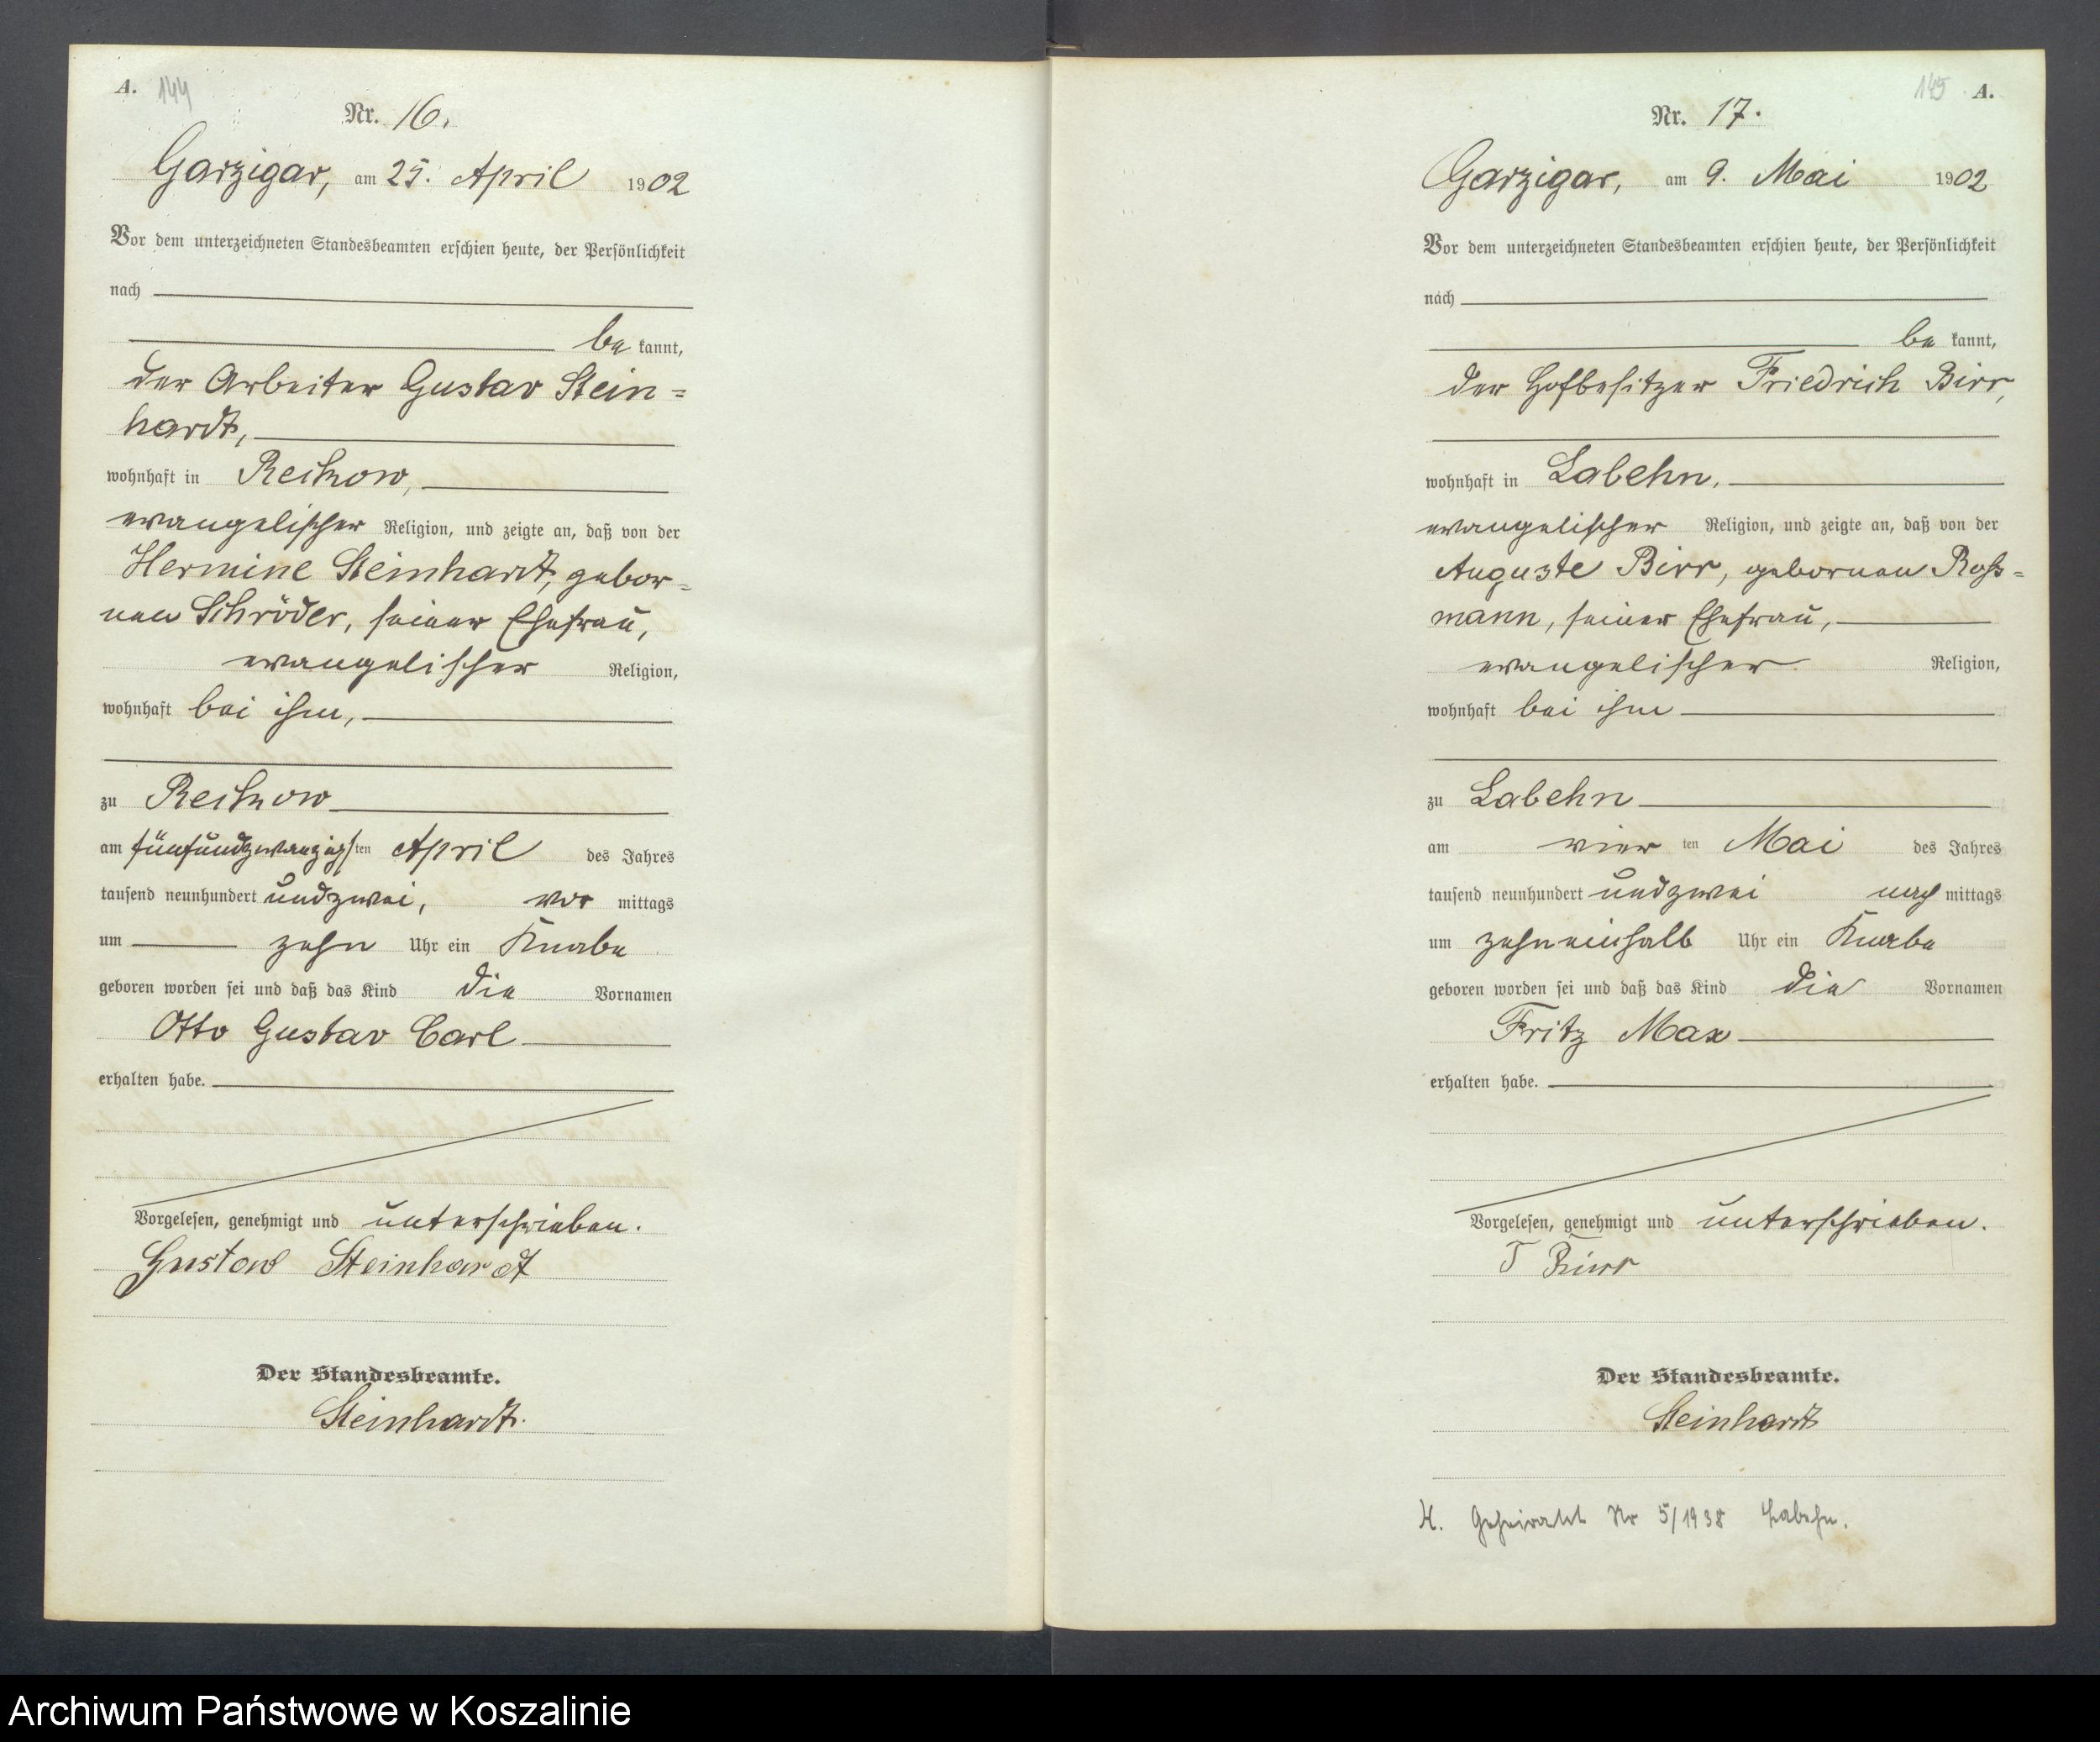 A. 144
Nr. 16.
Garzigar, am 25. April 1902
Vor dem unterzeichneten Standesbeamten erschien heute, der Persönlichkeit
nach
be kannt,
der Arbeiter Gustav Stein=
hardt,
wohnhaft in Reckow,
evangelischer Religion, und zeigte an, daß von der
Hermine Steinhardt, gebor=
nen Schröder, seiner Ehefrau,
evangelischer Religion,
wohnhaft bei ihm,
zu Reckow
am fünfundzwanzigsten April des Jahres
tausend neunhundert undzwei, vor mittags
um zehn Uhr ein Knabe
geboren worden sei und daß das Kind die Vornamen
Otto Gustav Carl
erhalten habe.
Vorgelesen, genehmigt und unterschrieben.
Gustav Steinhardt
Der Standesbeamte.
Steinhardt.
145 A.
Nr. 17.
Garzigar, am 9. Mai 1902
Vor dem unterzeichneten Standesbeamten erschien heute, der Persönlichkeit
nach
be kannt,
der Hofbesitzer Friedrich Birr,
wohnhaft in Labehn,
evangelischer Religion, und zeigte an, daß von der
Auguste Birr, gebornen Roß=
mann, seiner Ehefrau,
evangelischer Religion,
wohnhaft bei ihm
zu Labehn
am vier ten Mai des Jahres
tausend neunhundert undzwei nach mittags
um zehneinhalb Uhr ein Knabe
geboren worden sei und daß das Kind die Vornamen
Fritz Max
erhalten habe.
Vorgelesen, genehmigt und unterschrieben.
F Birr
Der Standesbeamte.
Steinhardt
H. Geheiratet Nr 5/1938 Labehn.
Archiwum Państwowe w Koszalinie